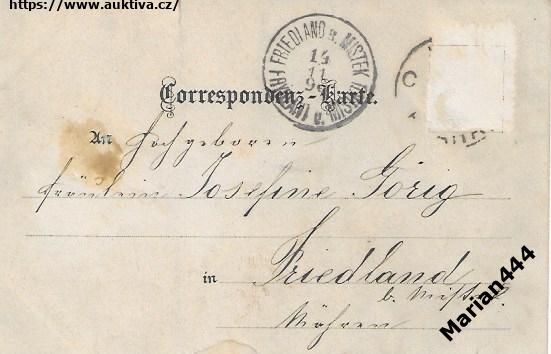 https://www.auktiva.cz/
FRIEDLAND B. MISTEK
14
11
99
Correspondenz-Karte.
An Hochgeboren
Fräulein Josefine Görig
in Friedland
b. Mistek
Mähren
Marian444